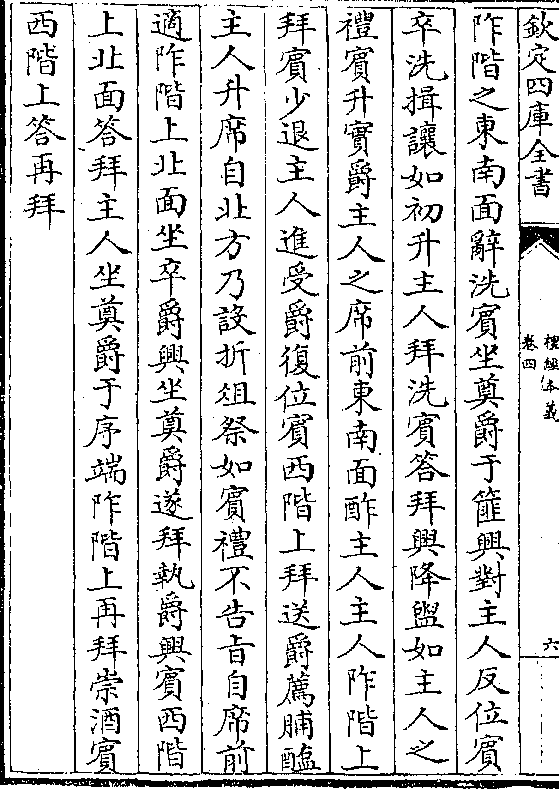 欽定四庫全書
禮經本義
卷四
六
阼階之東南面辭洗賓坐奠爵于篚興對主人反位賓
卒洗揖讓如初升主人拜洗賓答拜興降盥如主人之
禮賓升實爵主人之席前東南面酢主人主人阼階上
拜賓少退主人進受爵復位賓西階上拜送爵薦脯醢
主人升席自北方乃設折俎祭如賓禮不告旨自席前
適阼階上北面坐卒爵興坐奠爵遂拜執爵興賓西階
上北面答拜主人坐奠爵于序端阼階上再拜崇酒賓
西階上答再拜